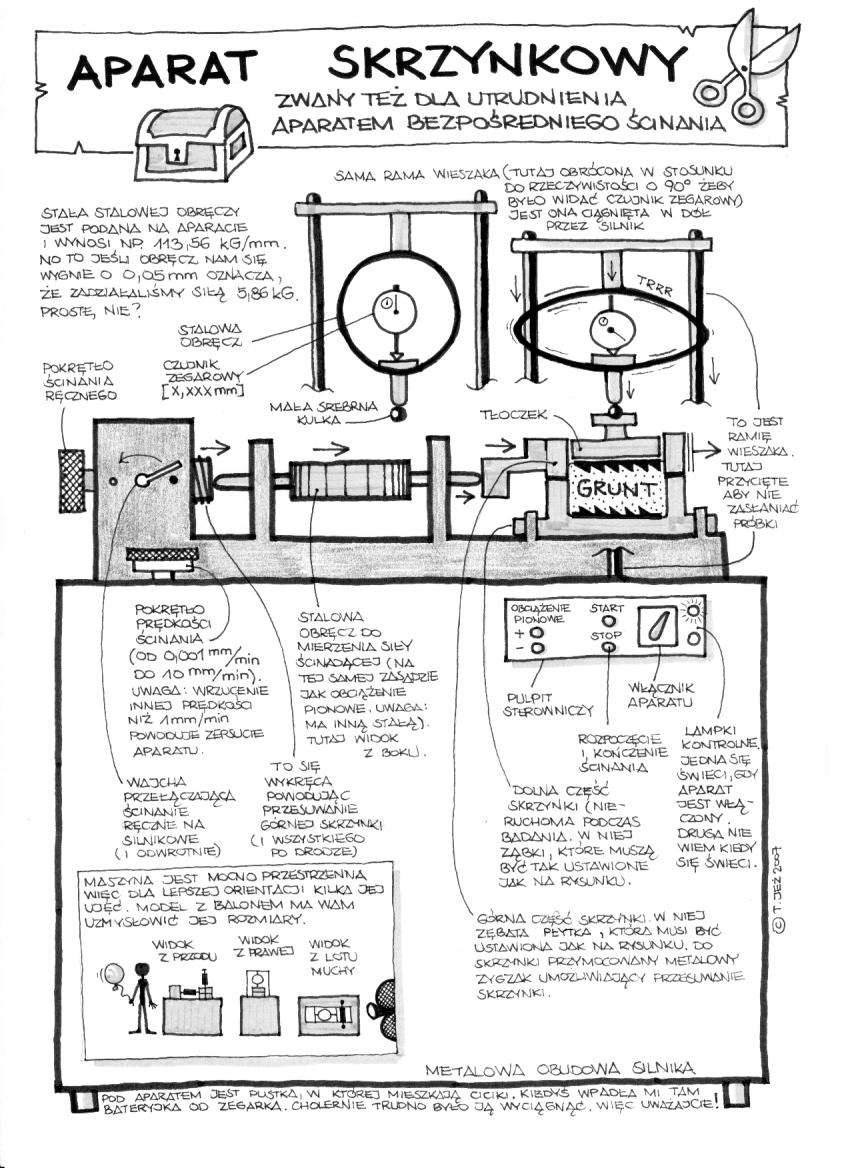 APARAT SKRZYNKOWY
ZWANY TEŻ DLA UTRUDNIENIA
APARATEM BEZPOŚREDNIEGO ŚCINANIA
SAMA RAMA WIESZAKA (TUTAJ OBRÓCONA W STOSUNKU
DO RZECZYWISTOŚCI O 90° ŻEBY
BYŁO WIDAĆ CZUJNIK ZEGAROWY)
JEST ONA CIĄGNIĘTA W DÓŁ
PRZEZ SILNIK
STAŁA STALOWEJ OBRĘCZY
JEST PODANA NA APARACIE
I WYNOSI NP. 113,56 KG/MM.
NO TO JEŚLI OBRĘCZ NAM SIĘ
WYGNIE O 0,05 mm OZNACZA,
ŻE ZADZIAŁALIŚMY SIŁĄ 5,86 KG.
PROSTE, NIE?
TRRR
STALOWA
OBRĘCZ
CZUJNIK
ZEGAROWY
[X,XXX mm]
POKRĘTŁO
ŚCINANIA
RĘCZNEGO
MAŁA SREBRNA
KULKA
TŁOCZEK
TO JEST
RAMIĘ
WIESZAKA.
TUTAJ
PRZYCIĘTE
ABY NIE
ZASŁANIAĆ
PRÓBKI
GRUNT
POKRĘTŁO
PRĘDKOŚCI
ŚCINANIA
(OD 0,001 mm/min
DO 10 mm/min).
UWAGA: WRZUCENIE
INNEJ PRĘDKOŚCI
NIŻ 1mm/min
POWODUJE ZEPSUCIE
APARATU.
STALOWA
OBRĘCZ DO
MIERZENIA SIŁY
ŚCINAJĄCEJ (NA
TEJ SAMEJ ZASADZIE
JAK OBCIĄŻENIE
PIONOWE. UWAGA:
MA INNĄ STAŁĄ).
TUTAJ WIDOK
Z BOKU.
OBCIĄŻENIE
PIONOWE
+
-
START
STOP
PULPIT
STEROWNICZY
WŁĄCZNIK
APARATU
ROZPOCZĘCIE
I KOŃCZENIE
ŚCINANIA
LAMPKI
KONTROLNE.
JEDNA SIĘ
ŚWIECI, GDY
APARAT
JEST WŁĄ-
CZONY.
DRUGA NIE
WIEM KIEDY
SIĘ ŚWIECI.
WAJCHA
PRZEŁĄCZAJĄCA
ŚCINANIE
RĘCZNE NA
SILNIKOWE
(I ODWROTNIE)
TO SIĘ
WYKRĘCA
POWODUJĄC
PRZESUWANIE
GÓRNEJ SKRZYNKI
(I WSZYSTKIEGO
PO DRODZE)
DOLNA CZĘŚĆ
SKRZYNKI (NIE-
RUCHOMA PODCZAS
BADANIA. W NIEJ
ZĄBKI, KTÓRE MUSZĄ
BYĆ TAK USTAWIONE
JAK NA RYSUNKU.
GÓRNA CZĘŚĆ SKRZYNKI. W NIEJ
ZĘBATA PŁYTKA, KTÓRA MUSI BYĆ
USTAWIONA JAK NA RYSUNKU. DO
SKRZYNKI PRZYMOCOWANY METALOWY
ZYGZAK UMOŻLIWIAJĄCY PRZESUWANIE
SKRZYNKI.
© T. JEŻ 2007
MASZYNA JEST MOCNO PRZESTRZENNA
WIĘC DLA LEPSZEJ ORIENTACJI KILKA JEJ
UJĘĆ. MODEL Z BALONEM MA WAM
UZMYSŁOWIĆ JEJ ROZMIARY.
WIDOK
Z PRZODU
WIDOK
Z PRAWEJ
WIDOK
Z LOTU
MUCHY
METALOWA OBUDOWA SILNIKA
POD APARATEM JEST PUSTKA, W KTÓREJ MIESZKAJĄ CICIKI. KIEDYŚ WPADŁA MI TAM
BATERYJKA OD ZEGARKA. CHOLERNIE TRUDNO BYŁO JĄ WYCIĄGNĄĆ, WIĘC UWAŻAJCIE!